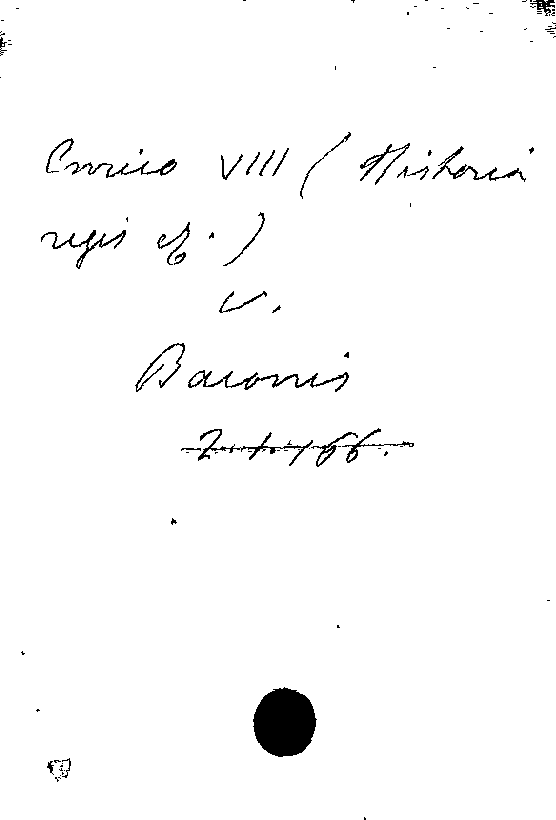 Enrico VIII (Historia
regis etc.)
v.
Baconis
2.1.166.